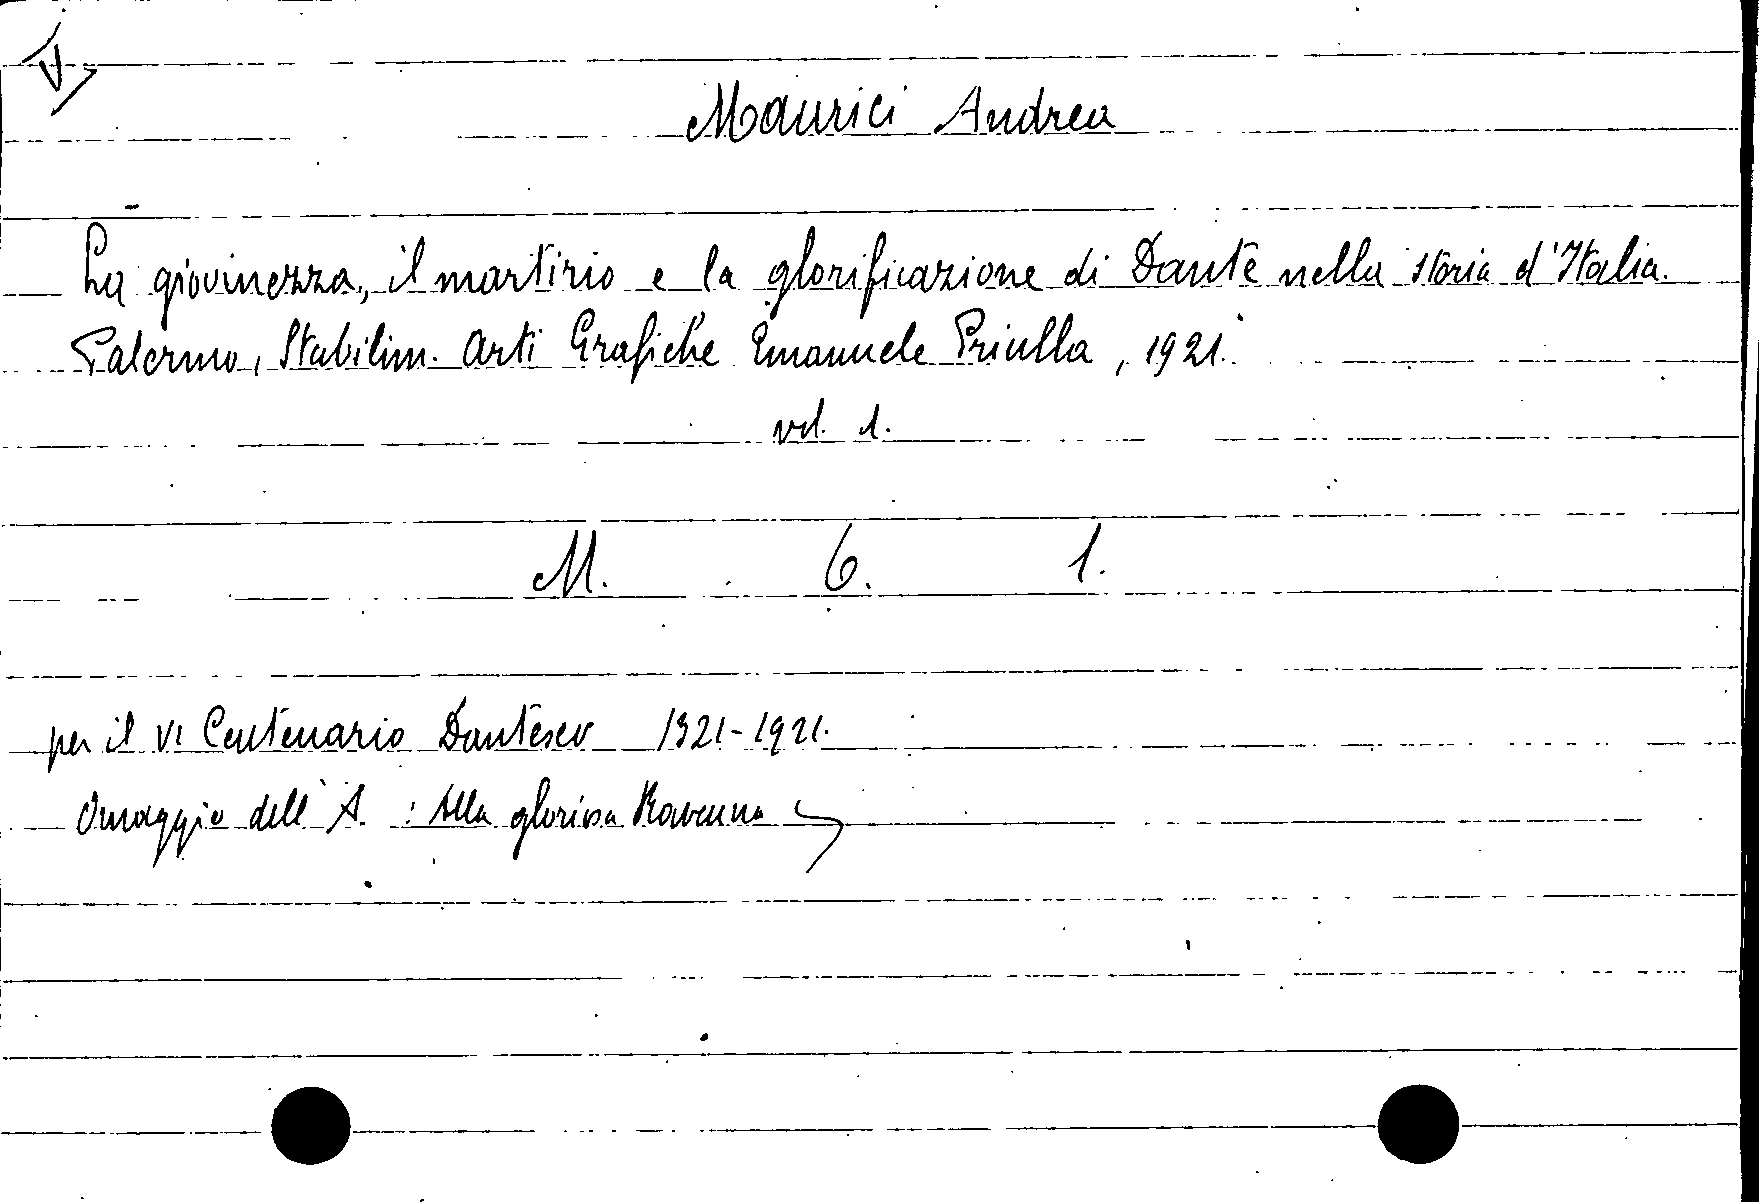 Maurici Andrea
La giovinezza, il martirio e la glorificazione di Dante nella storia d'Italia.
Palermo, Stabilim. Arti Grafiche Emanuele Priulla, 1921.
vol. 1.
M. 6. 1.
per il VI Centenario Dantesco 1321-1921.
Omaggio dell'A. : Alla gloriosa Ravenna